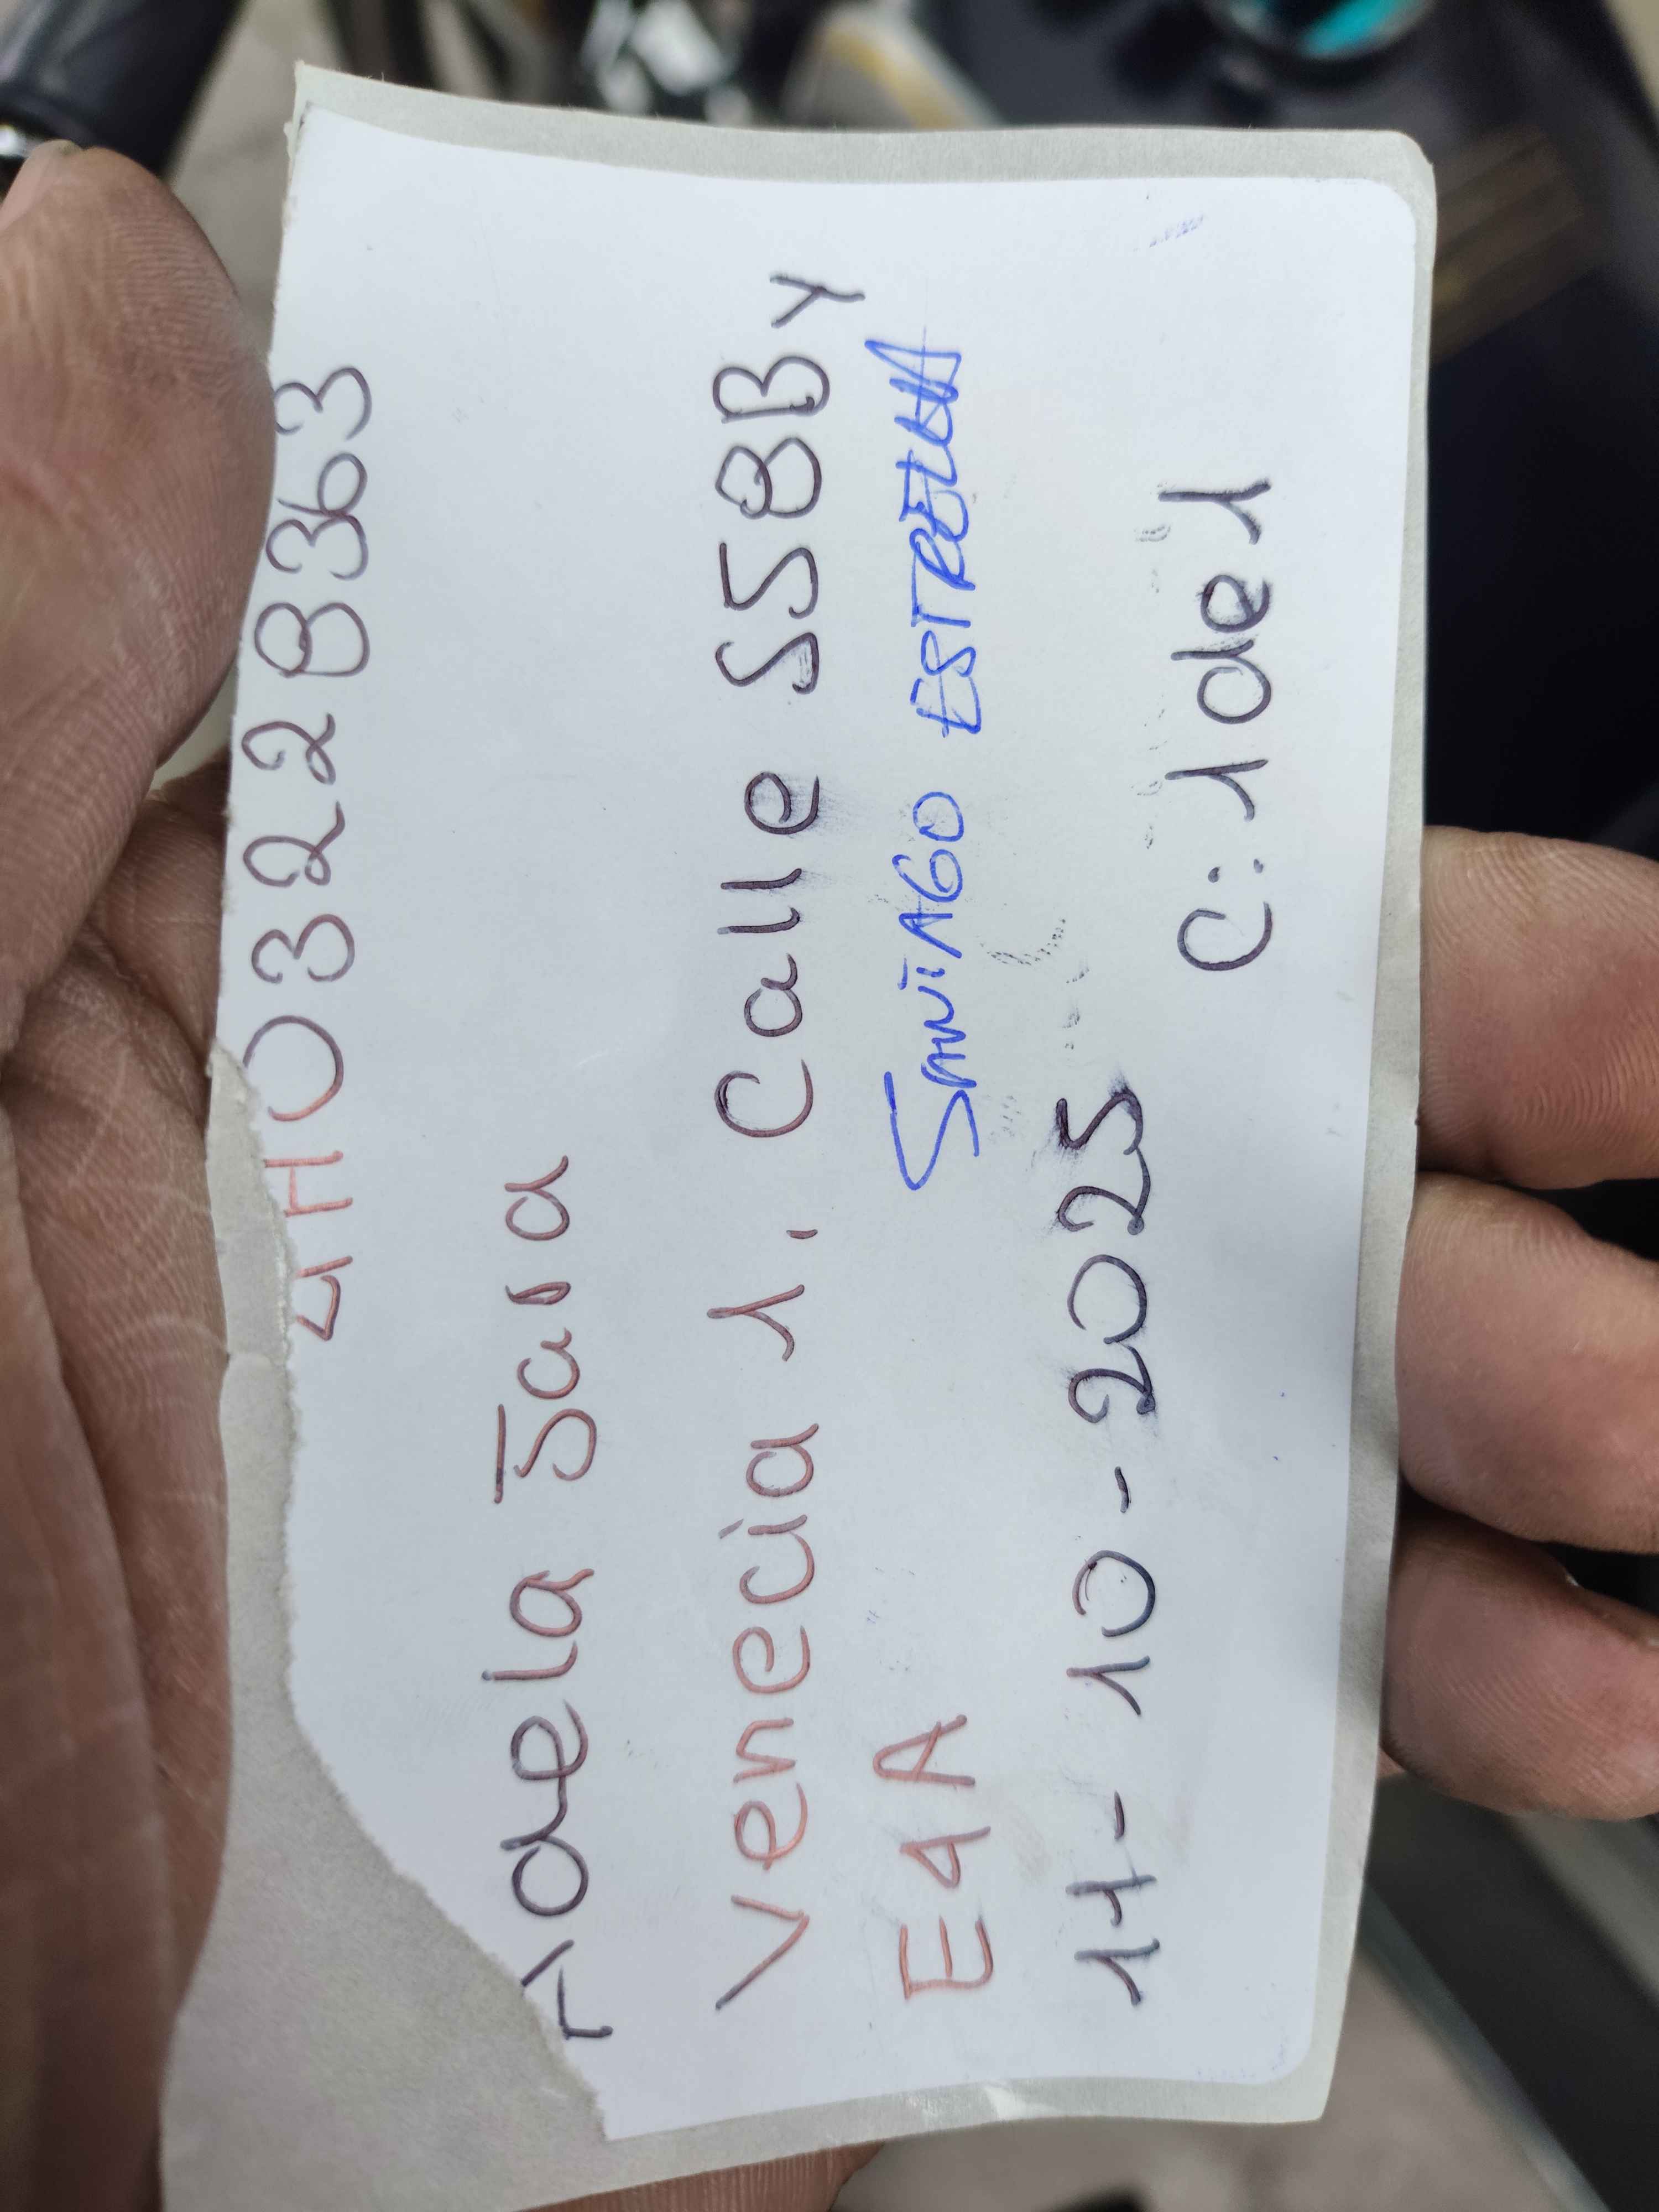 4H03228363
Adela Jara
Venecia 1. Calle S58B y
E4A SANTIAGO ESTRELLA
11-10-2025
C: 1 de 1